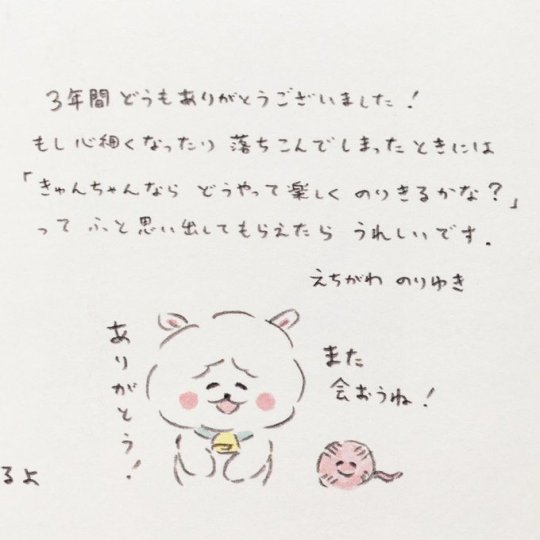 3年間 どうもありがとうございました!
もし心細くなったり 落ちこんでしまったときには
「きゃんちゃんなら どうやって楽しく のりきるかな?」
って ふと思い出してもらえたら うれしいです.
えちがわ のりゆき
ありがとう!
また
会おうね!
るよ